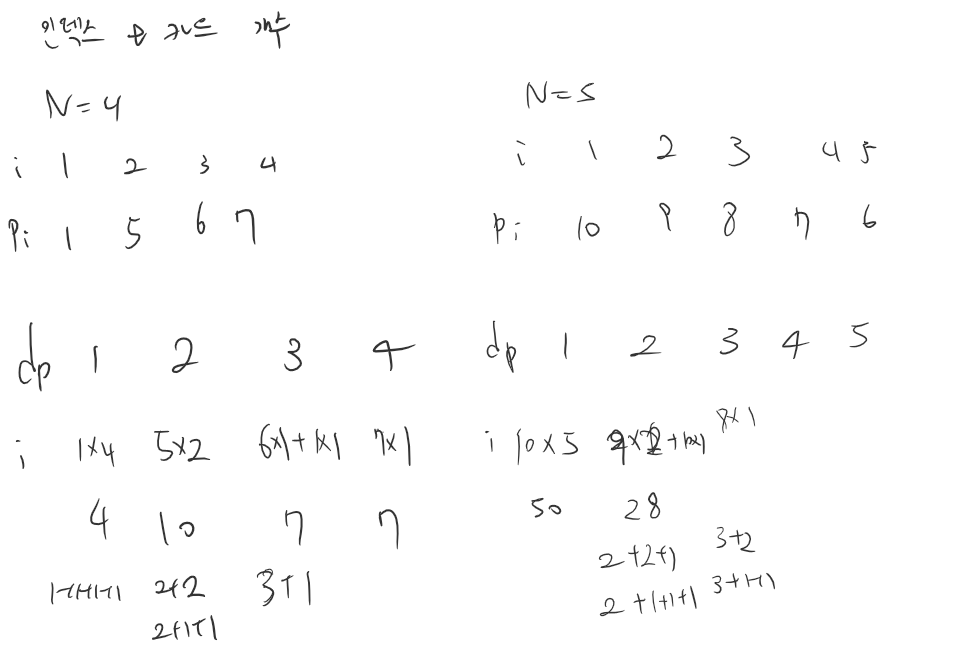 인덱스 는 카드 개수
N=4
i 1 2 3 4
Pi 1 5 6 7
dp 1 2 3 4
i 1x4 5x2 6x1+1x1 7x1
4 10 7 7
1+1+1+1 2+2 3+1
2+1+1
N=5
i 1 2 3 4 5
Pi 10 9 8 7 6
dp 1 2 3 4 5
i 10x5 9x2+10x1 8x1
50 28
2+2+1 3+2
2+1+1+1 3+1+1